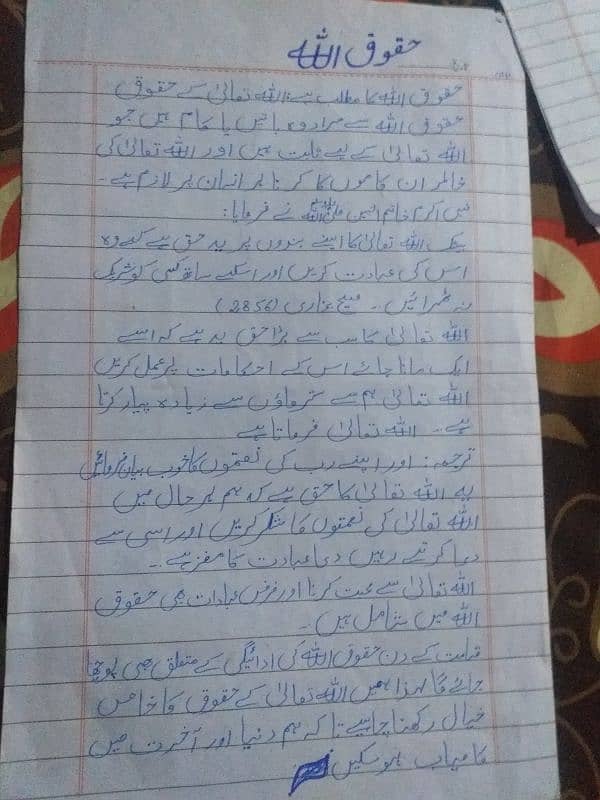 حقوق اللہ
حقوق اللہ کا مطلب ہے اللہ تعالیٰ کے حقوق
حقوق اللہ سے مراد وہ باتیں یا کام ہیں جو
اللہ تعالیٰ کے لیے ثابت ہیں اور اللہ تعالیٰ کی
خاطر ان کاموں کا کرنا ہر انسان پر لازم ہے۔
نبی اکرم خاتم النبین ﷺ نے فرمایا:
بیشک اللہ تعالیٰ کا اپنے بندوں پر یہ حق ہے کہ وہ
اس کی عبادت کریں اور اسکے ساتھ کسی کو شریک
نہ ٹھرائیں۔ صیح بخاری (2856)
اللہ تعالیٰ کا سب سے بڑا حق یہ ہے کہ اسے
ایک مانا جائے اس کے احکامات پر عمل کریں
اللہ تعالیٰ ہم سے ستر ماؤں سے زیادہ پیار کرتا
ہے۔ اللہ تعالیٰ فرماتا ہے
ترجمہ: اور اپنے رب کی نعمتوں کا خوب بیان فرمائیں
یہ اللہ تعالیٰ کا حق ہے کہ ہم ہر حال میں
اللہ تعالیٰ کی نعمتوں کا شکر کریں اور اسی سے
دعا کرتے رہیں دعا عبادت کا مغز ہے۔
اللہ تعالیٰ سے محبت کرنا اور فرض عبادات بھی حقوق
اللہ میں شامل ہیں۔
قیامت کے دن حقوق اللہ کی ادائیگی کے متعلق بھی پوچھا
جائے گا لہذا ہمیں اللہ تعالیٰ کے حقوق کا خاص
خیال رکھنا چاہیے تاکہ ہم دنیا اور آخرت میں
کامیاب ہو سکیں